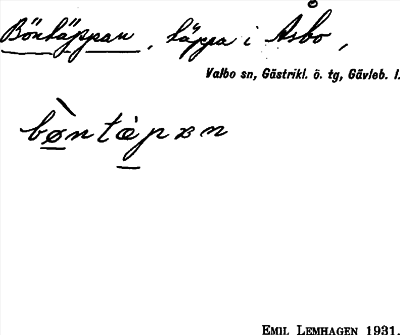 Böntäppan, täppa i Åsbo,
Valbo sn, Gästrikl. ö. tg, Gävleb. l.
bø̀ntäpan
EMIL LEMHAGEN 1931.